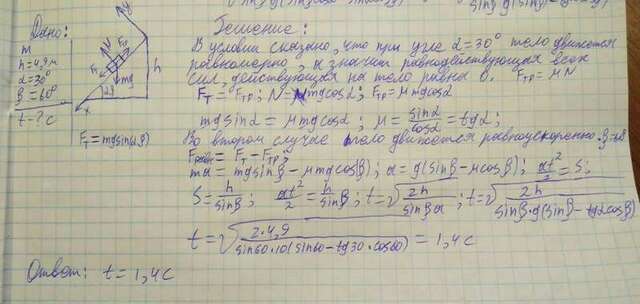 Дано:
m
h=4,9м
α=30°
β=60°
t-?с
F_T=mgsin(α,β)
y
N
mg
h
x
Решение:
В условии сказано, что при угле α=30° тело движется
равномерно, а значит равнодействующая всех
сил, действующая на тело равна 0. F_тр=μN
F_T=F_тр; N=mgcosα; F_тр=μmgcosα
mgsinα=μmgcosα; μ=sinα/cosα=tgα;
Во втором случае тело движется равноускоренно.
F_равн=F_T-F_тр;
ma=mgsinβ-μmgcosβ; a=g(sinβ-μcosβ); at²/2=S;
S=h/sinβ; at²/2=h/sinβ; t=√(2h/sinβa); t=√(2h/sinβ·g(sinβ-tgαcosβ))
t=√(2·4,9/sin60·10(sin60-tg30·cos60))=1,4с
Ответ: t=1,4с